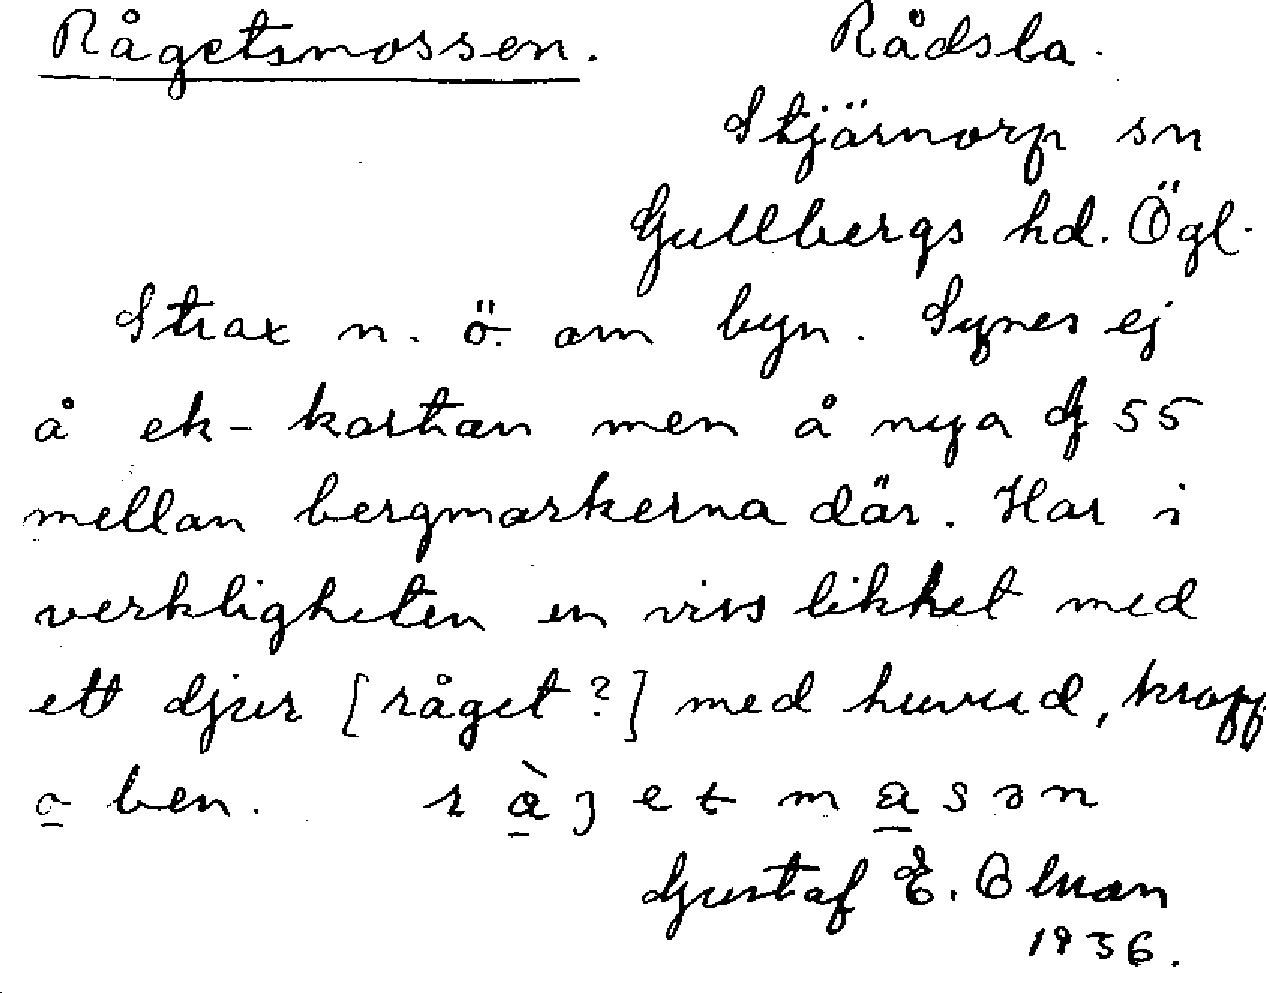 Rågetsmossen. Rådsla.
Stjärnorp sn
Gullbergs hd. Ögl.
Strax n. ö. om byn. Synes ej
å ek-kartan men å nya G 55
mellan bergmarkerna där. Har i
verkligheten en viss likhet med
ett djur [råget?] med huvud, kropp
o ben. r à ȷ e t m a s ə n
Gustaf E. Olsson
1936.